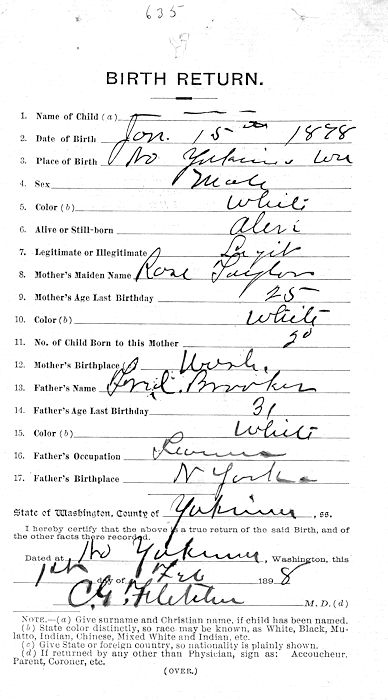 635
BIRTH RETURN.
1. Name of Child (a) — —
2. Date of Birth Jan. 15th 1898
3. Place of Birth No Yakima Wn
4. Sex Male
5. Color (b) White
6. Alive or Still-born Alive
7. Legitimate or Illegitimate Legit
8. Mother's Maiden Name Rose Taylor
9. Mother's Age Last Birthday 25
10. Color (b) White
11. No. of Child Born to this Mother
12. Mother's Birthplace (c) Wash.
13. Father's Name C. Brooker
14. Father's Age Last Birthday 31
15. Color (b) White
16. Father's Occupation
17. Father's Birthplace N York
State of Washington, County of Yakima, ss.
I hereby certify that the above is a true return of the said Birth, and of
the other facts there recorded.
Dated at No Yakima, Washington, this
1st day of Feb 1898
C. G. Fletcher M. D. (d)
NOTE.—(a) Give surname and Christian name, if child has been named.
(b) State color distinctly, so race may be known, as White, Black, Mu-
latto, Indian, Chinese, Mixed White and Indian, etc.
(c) Give State or foreign country, so nationality is plainly shown.
(d) If returned by any other than Physician, sign as: Accoucheur,
Parent, Coroner, etc.
(OVER.)